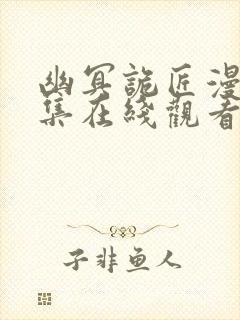 幽冥詭匠漫
集在綫觀看
子非鱼人